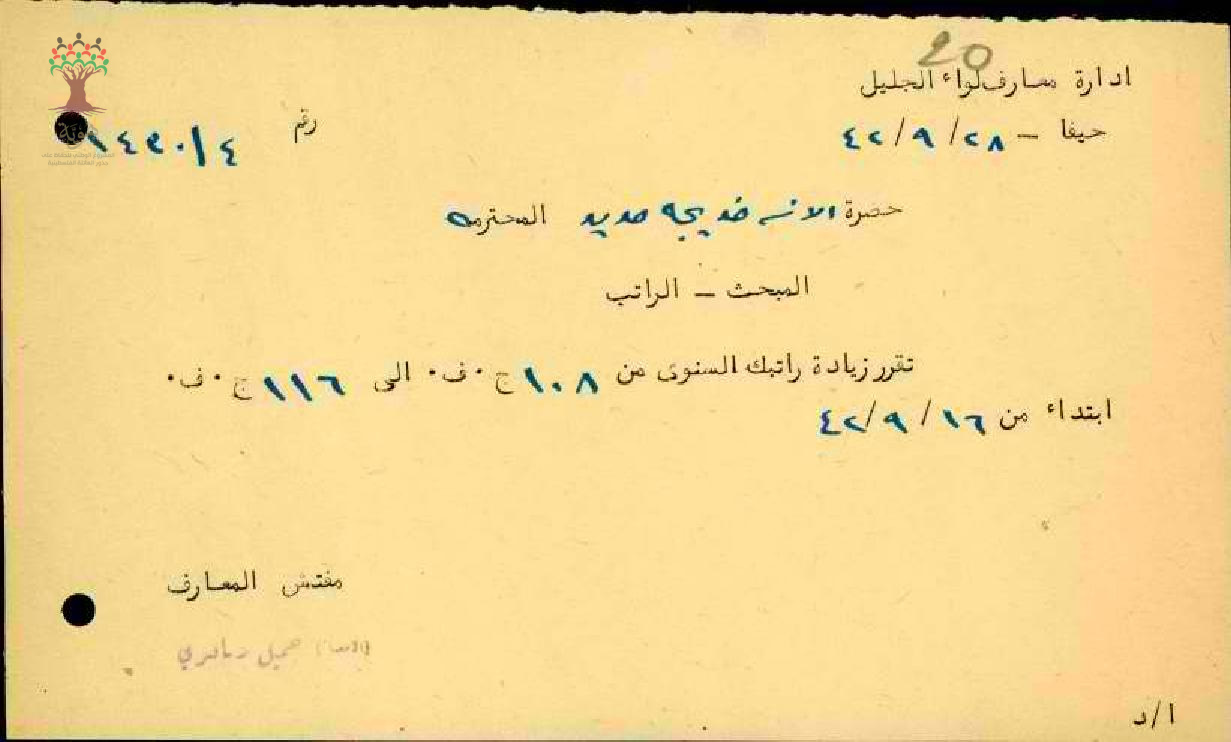 20
ادارة معارف لواء الجليل
حيفا – ٤٢/٩/٢٨
رقم ٤/١٤٣٠
حضرة الانسه خديجه حديد المحترمه
المبحث – الراتب
تقرر زيادة راتبك السنوى من ١٠٨ ج٠ف٠ الى ١١٦ ج٠ف٠
ابتداء من ٤٢/٩/١٦
مفتش المعارف
جميل
ا/د